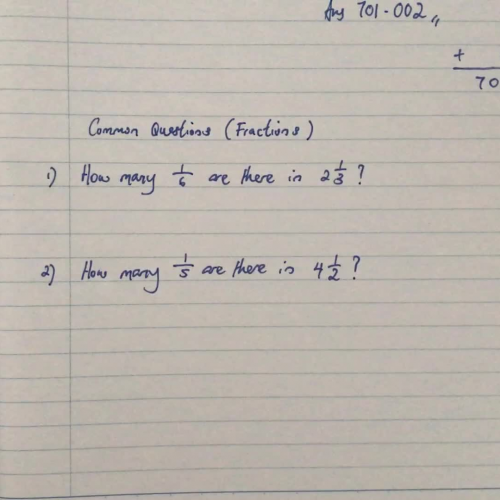 Ans 701.002,,
+
70
Common Questions (Fractions)
1) How many 1/6 are there in 2 1/3 ?
2) How many 1/5 are there in 4 1/2 ?